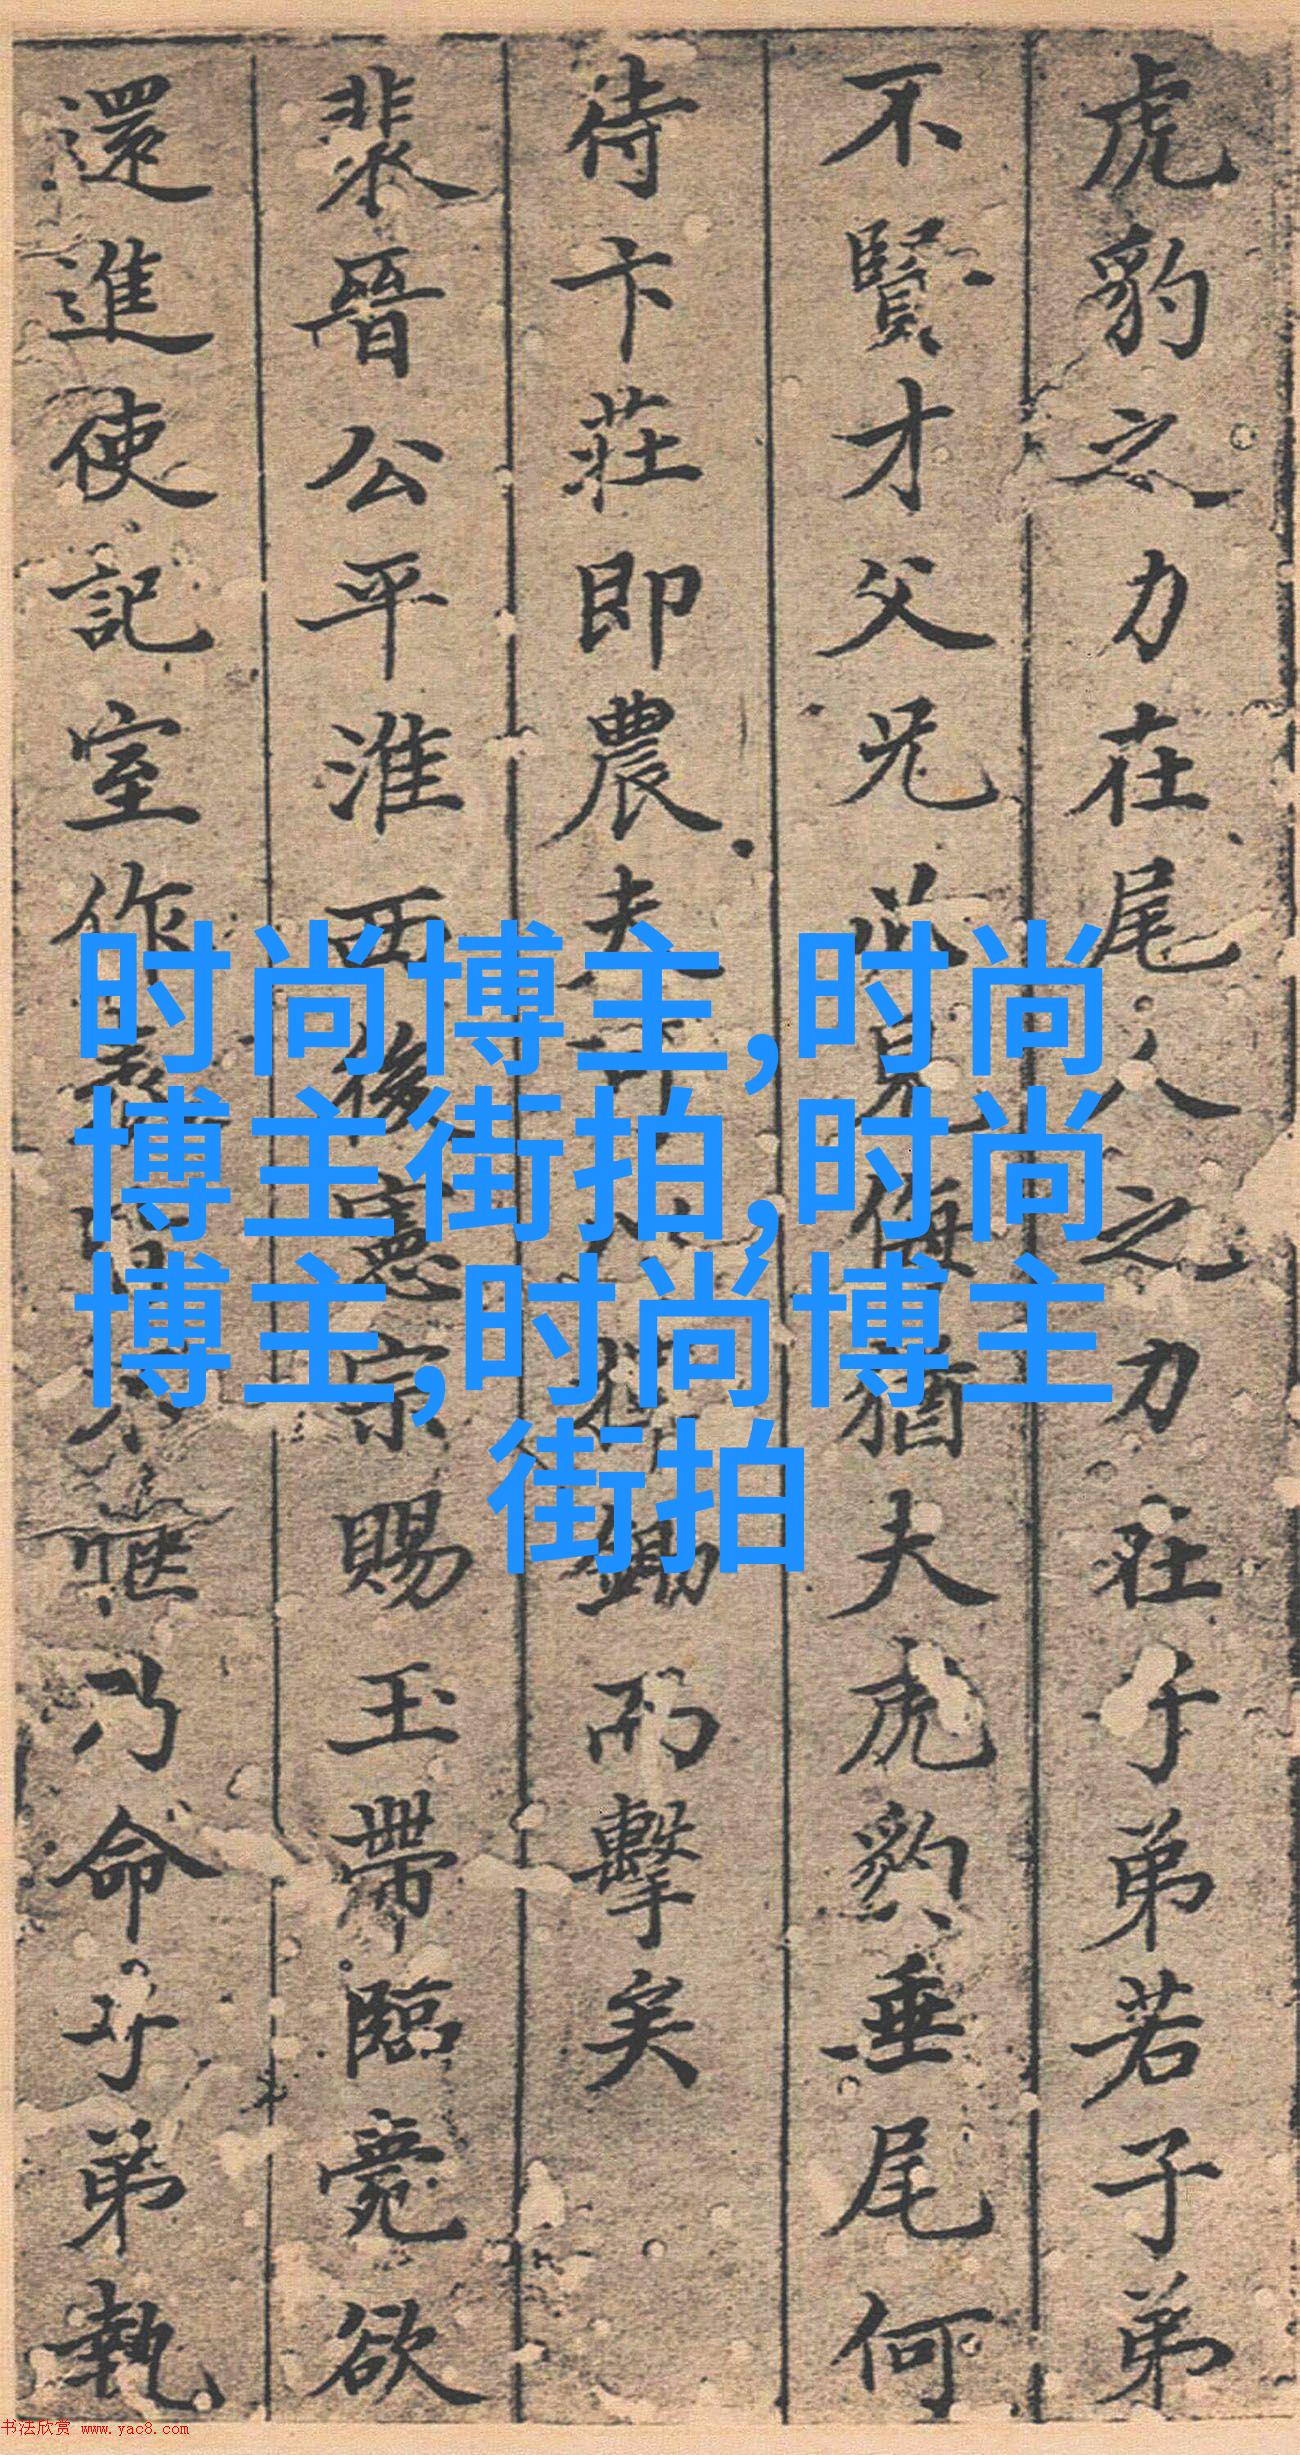 虎豹之力在尾人之力在子弟若子弟
不賢才父兄必見侮猶夫虎豹垂尾何
待卞莊即農夫可以鋤而擊矣
裴晉公平淮西後憲宗賜玉帶臨薨欲
還進使記室作表皆不愜乃命子弟執
时尚博主,时尚
博主街拍,时尚
博主,时尚博主
街拍
书法欣赏 www.yac8.com